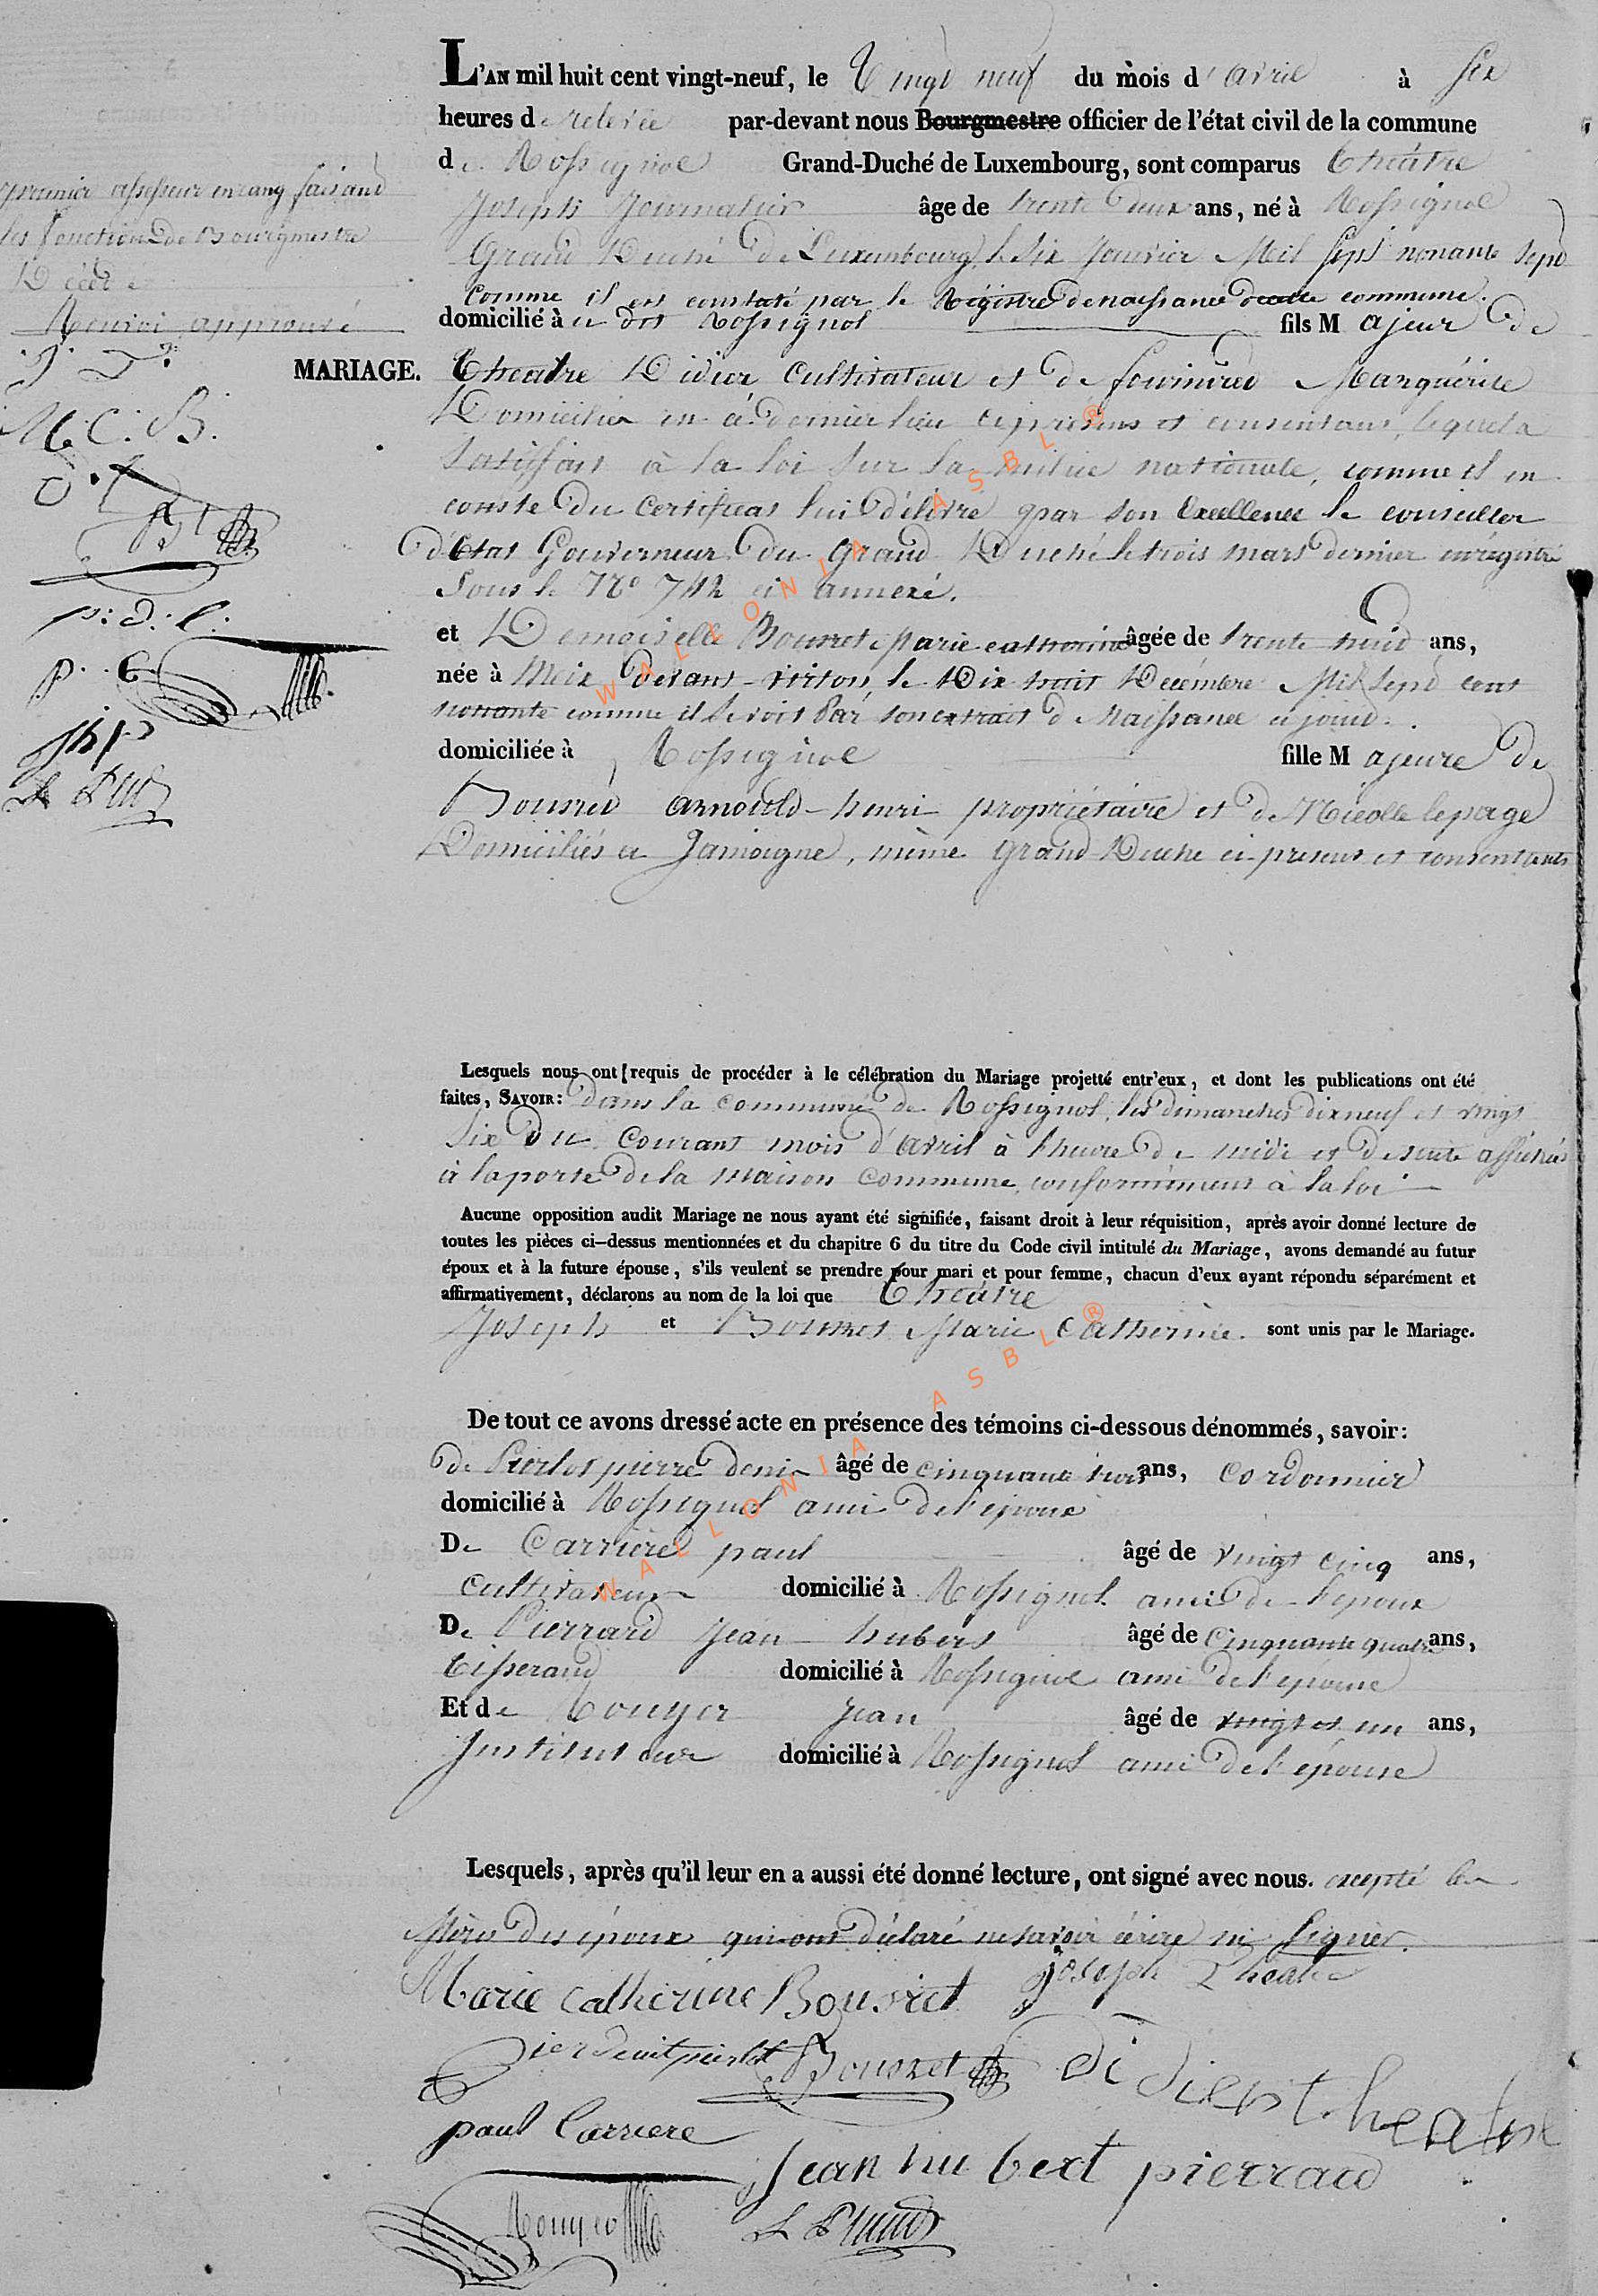 L'AN mil huit cent vingt-neuf, le Vingt neuf du mois d'avril à Six
heures de relevée par-devant nous Bourgmestre officier de l'état civil de la commune
de Rossignol Grand-Duché de Luxembourg, sont comparus théâtre
premier assesseur en rang faisant
les fonctions de Bourgmestre
Décédé
Renvoi approuvé
Joseph Journalier âge de trente deux ans, né à Rossignol
Grand Duché de Luxembourg, le Six Janvier Mil Sept nonante Sept
Comme il est constaté par le Régistre de naissance de cette commune.
domicilié à Rossignol fils Majeur de
MARIAGE.
théatre Didier Cultivateur et de fourniret Marguérite
Domiciliés en ce dernier lieu ci présens et consentans, lequel a
Satisfait à la loi Sur la milice nationale, comme il en
conste du Certificat lui délivré par Son Excellence le conseiller
d'Etat Gouverneur du Grand Duché le trois mars dernier enrégistré
Sous le No 742 ci annexé.
M. C. B.
p: d: l:
et Demoiselle Bousret Marie catherine âgée de trente huit ans,
née à Meix devant-virton, le Dix huit Décembre Mil Sept cent
nonante comme il Se voit Par son extrait de Naissance ci joint.
domiciliée à Rossignol fille Majeure de
Bousret arnould-henri propriétaire et de Nicolle lepage
Domiciliés a Jamoigne, même grand Duché ci présens et consentants
Lesquels nous ont [requis de procéder à le célébration du Mariage projetté entr'eux, et dont les publications ont été
faites, SAVOIR: dans la commune de Rossignol, les dimanches dix neuf et vingt
Six du Courant mois d'avril à l'heure de midi et de suite affichées
à la porte de la maison Commune, conformément à la loi
Aucune opposition audit Mariage ne nous ayant été signifiée, faisant droit à leur réquisition, après avoir donné lecture de
toutes les pièces ci-dessus mentionnées et du chapitre 6 du titre du Code civil intitulé du Mariage, avons demandé au futur
époux et à la future épouse, s'ils veulent se prendre pour mari et pour femme, chacun d'eux ayant répondu séparément et
affirmativement, déclarons au nom de la loi que théâtre
Joseph et Bousret Marie Catherine. sont unis par le Mariage.
De tout ce avons dressé acte en présence des témoins ci-dessous dénommés, savoir:
de Pierlot pierre denis âgé de cinquante trois ans, Cordonnier
domicilié à Rossignol ami de l'époux
De Carrière paul âgé de vingt cinq ans,
cultivateur domicilié à Rossignol ami de l'époux
De Pierrard Jean hubert âgé de Cinquante quatre ans,
tisserand domicilié à Rossignol ami de l'épouse
Et de Rouyer Jean âgé de vingt et un ans,
Instituteur domicilié à Rossignol ami de l'épouse
Lesquels, après qu'il leur en a aussi été donné lecture, ont signé avec nous. excepté les
Mères des époux qui ont déclaré ne savoir écrire ni Signer.
Marie Catherine Bousret Joseph Theatre
Bousret didier theatre
paul Carriere
Jean hubert pierrard
Rouyer
WALLONIA ASBL ®
WALLONIA ASBL ®